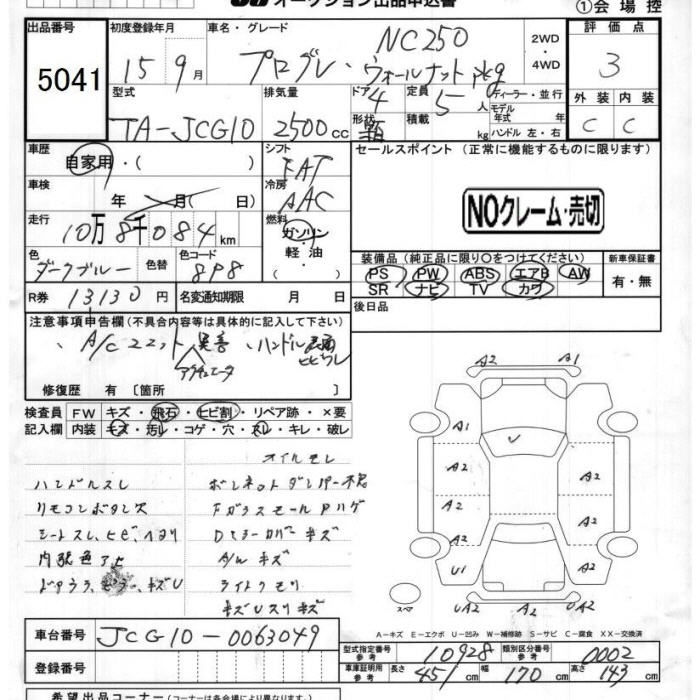 オークション出品申込書
①会場控
出品番号
5041
初度登録年月
15年9月
車名・グレード
プログレ・ウォールナットpkg
NC250
2WD
・
4WD
評価点
3
型式
TA-JCG10
排気量
2500cc
ドア
4
形状
定員
5人
積載
kg
ディーラー・並行
モデル
年式 年
ハンドル 左・右
外装 内装
C C
車歴
自家用・( )
シフト
FAT
セールスポイント (正常に機能するものに限ります)
車検
年 月( 日)
冷房
AAC
NOクレーム・売切
走行
10万8千084km
燃料
ガソリン
軽油
( )
色
ダークブルー
色替
色コード
8P8
装備品 (純正品に限り○をつけてください)
新車保証書
PS PW ABS エアB AW
SR ナビ TV カワ
有・無
R券
13130円
名変通知期限 月 日
後日品
注意事項申告欄(不具合内容等は具体的に記入して下さい)
、A/Cユニット 異音、ハンドル
アクチュエータ
修復歴 有〔箇所 〕
検査員 FW キズ・飛石・ヒビ割・リペア跡・×要
記入欄 内装 キズ・汚レ・コゲ・穴・スレ・キレ・破レ
オイルモレ
ハンドルスレ
ボンネットダンパー不良
リモコンボタン欠
Fガラスモールハゲ
シートスレ、ヒビ、ヘタリ
Dミラーカバーキズ
内張色アト
A/Wキズ
ライトクモリ
A2 A1
A1
U
A2 A2
A2 A2
U1 A2
スペア
UA2 UA2
A-キズ E-エクボ U-凹み W-補修跡 S-サビ C-腐食 XX-交換済
車台番号
JCG10-0063049
型式指定番号
参考
10928
類別区分番号
参考
0002
登録番号
車庫証明用
参考
長さ
451
幅
170
高さ
143cm
希望出品コーナー(コーナーは各会場により異なります。)